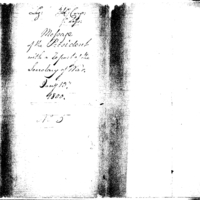 Message
of the President
with a report of the
Secretary of War.
Jany 13
1800.
No 5